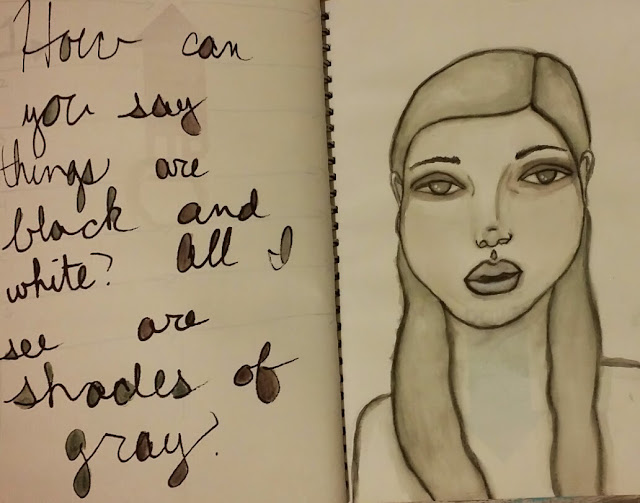 How can
you say
things are
black and
white? All I
see are
shades of
gray.